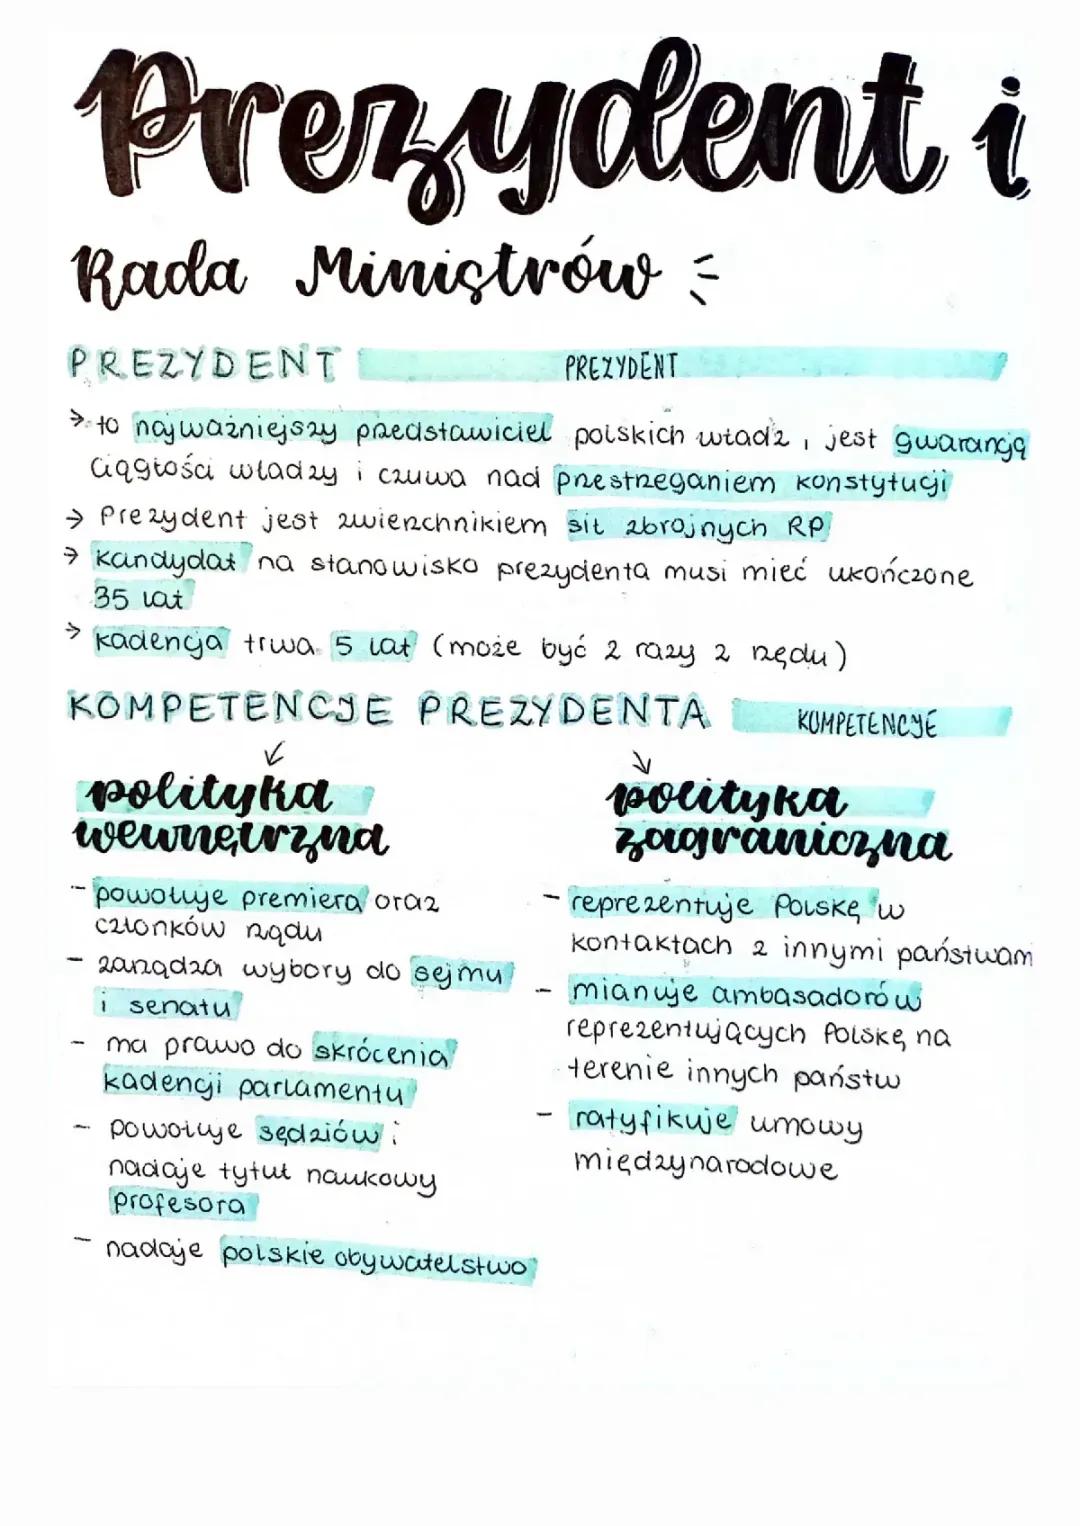 Prezydent i
Rada Ministrów
PREZYDENT PREZYDENT
→ to najważniejszy przedstawiciel polskich władz, jest gwarancją
ciągłości władzy i czuwa nad przestrzeganiem konstytucji
→ Prezydent jest zwierzchnikiem sił zbrojnych RP
→ kandydat na stanowisko prezydenta musi mieć ukończone
35 lat
→ kadencja trwa 5 lat (może być 2 razy z rzędu)
KOMPETENCJE PREZYDENTA KOMPETENCJE
polityka
wewnętrzna
- powołuje premiera oraz
członków rządu
- zarządza wybory do sejmu
i senatu
- ma prawo do skrócenia
kadencji parlamentu
- powołuje sędziów i
nadaje tytuł naukowy
profesora
- nadaje polskie obywatelstwo
polityka
zagraniczna
- reprezentuje Polskę w
kontaktach z innymi państwam
- mianuje ambasadorów
reprezentujących Polskę na
terenie innych państw
- ratyfikuje umowy
międzynarodowe